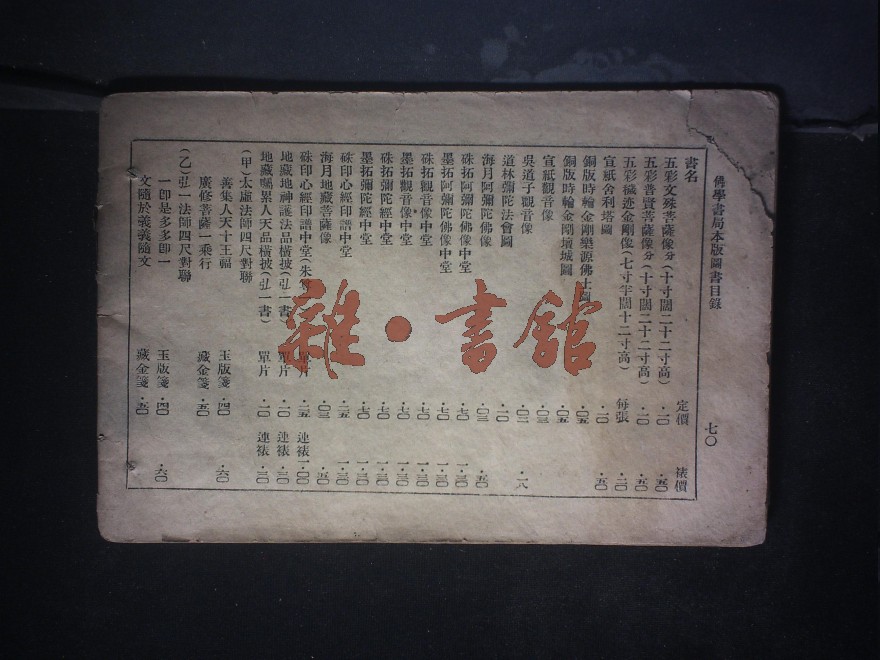 佛學書局本版圖書目錄 七〇
書名 定價 裱價
五彩文殊菩薩像分(十寸闊二十二寸高) ·一〇 ·五〇
五彩普賢菩薩像分(十寸闊二十二寸高) ·一〇 ·五〇
五彩穢迹金剛像(七寸半闊十二寸高) 每張 ·二〇
宣紙舍利塔圖 ·一〇 ·五〇
銅版時輪金剛樂源佛土圖 ·〇五
銅版時輪金剛壇城圖 ·〇五
宣紙觀音像 ·〇三
吳道子觀音像 ·〇三 ·一八
道林彌陀法會圖 ·一〇
海月阿彌陀佛像 ·〇三 ·五〇
硃拓阿彌陀佛像中堂 ·七〇 一·三〇
墨拓阿彌陀佛像中堂 ·七〇 一·三〇
硃拓觀音像中堂 ·七〇 一·三〇
墨拓觀音像中堂 ·七〇 一·三〇
硃拓彌陀經中堂 ·七〇 一·三〇
墨拓彌陀經中堂 ·七〇 一·三〇
硃印心經印譜中堂 ·二五 一·三〇
海月地藏菩薩像 ·〇三 ·五〇
硃印心經印譜中堂(朱 單片 ·二五 連裱 一·〇〇
地藏地神護法品橫披(弘一書) 單片 ·一〇 連裱 ·三〇
地藏囑累人天品橫披(弘一書) 單片 ·一〇 連裱 ·三〇
(甲)太虛法師四尺對聯
善集人天十王福 玉版箋 ·四〇 ·六〇
廣修菩薩一乘行 藏金箋 ·五〇
(乙)弘一法師四尺對聯
一即是多多即一 玉版箋 ·四〇 ·六〇
文隨於義義隨文 藏金箋 ·五〇
雜·書館